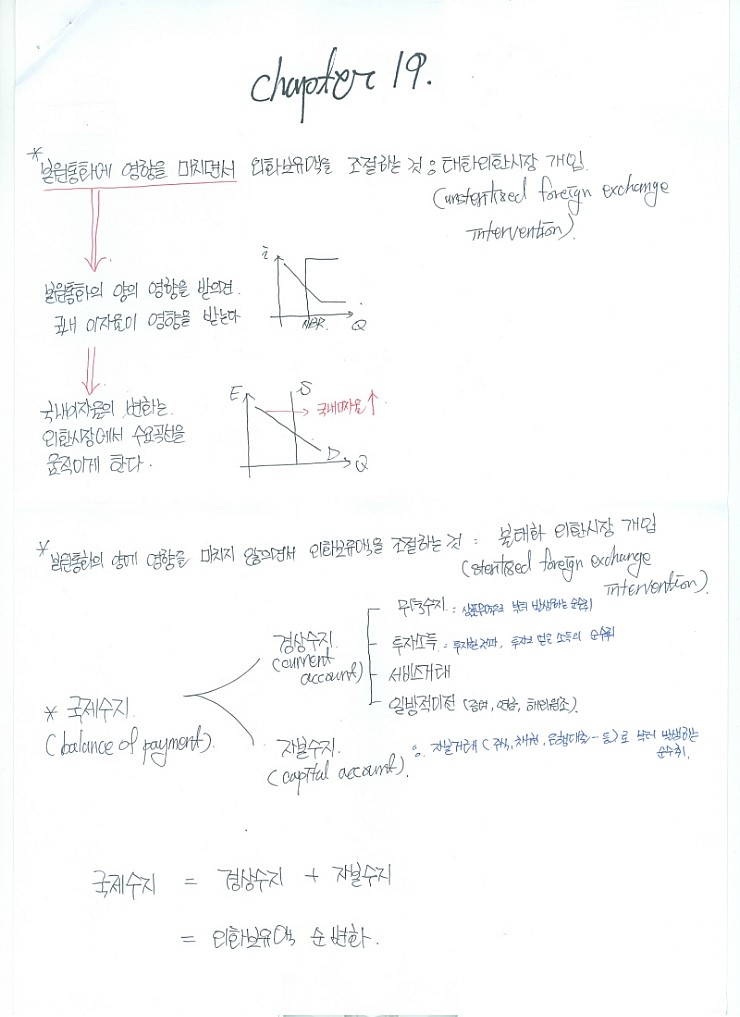 chapter 19.
* 본원통화에 영향을 미치면서 외화보유액을 조절하는 것 : 태화외환시장 개입.
(unsterilised foreign exchange
intervention).
본원통화의 양의 영향을 받으면.
국내 이자율이 영향을 받는다
i
NBR.
Q
국내이자율의 변화는
외환시장에서 수요곡선을
움직이게 한다.
E
S
국내이자율 ↑
D
Q
* 본원통화의 양에 영향을 미치지 않으면서 외화보유액을 조절하는 것 : 불태화 외환시장 개입
(sterilised foreign exchange
intervention).
* 국제수지.
(balance of payment).
경상수지.
(current
account)
무역수지. : 상품무역으로 부터 발생하는 순수취
투자소득. : 투자한 투자로 얻은 소득의 순수취
서비스거래
일방적이전 (증여, 연금, 해외원조).
자본수지.
(capital account).
: 자본거래 (주식, 채권, 은행대출 … 등)로 부터 발생하는
순수취.
국제수지 = 경상수지 + 자본수지
= 외화보유액 순 변화.